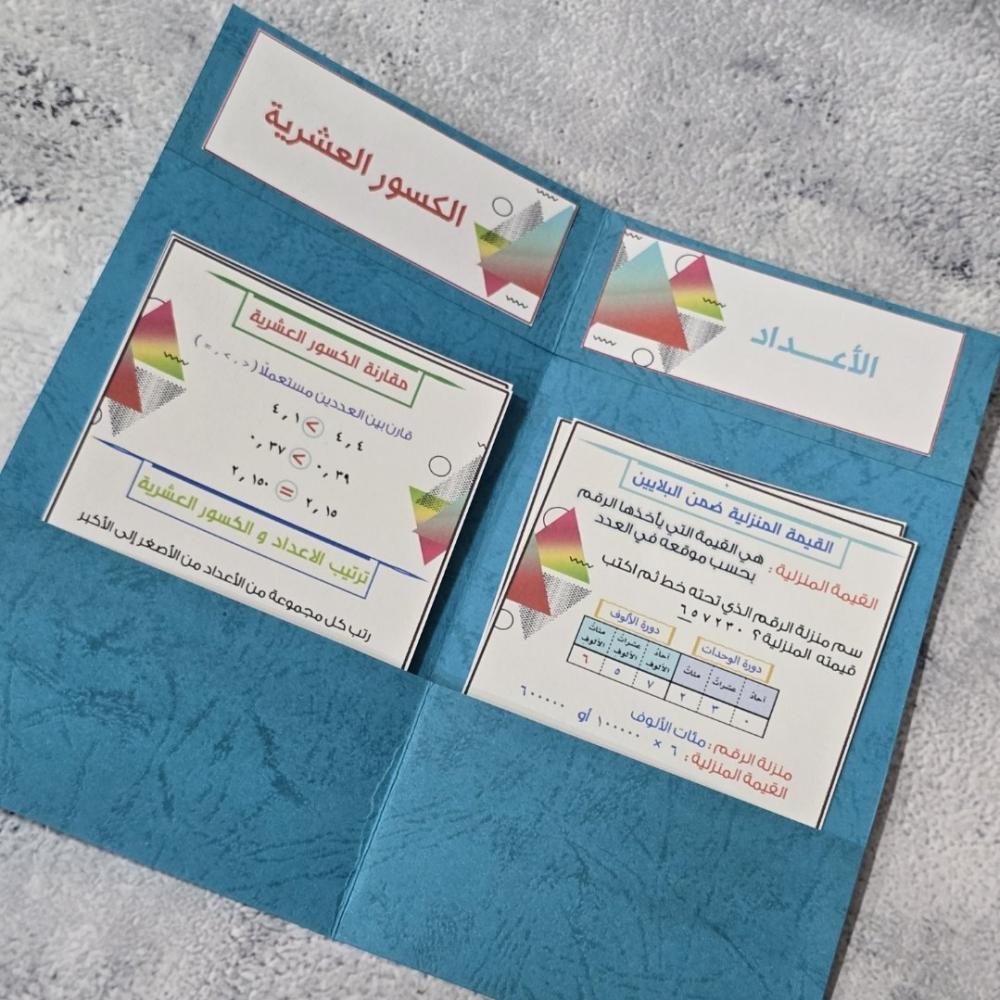 الأعـــداد
القيمة المنزلية ضمن البلايين
القيمة المنزلية : هي القيمة التي يأخذها الرقم
بحسب موقعه في العدد
سم منزلة الرقم الذي تحته خط ثم اكتب
قيمته المنزلية؟ ٦٥٧٢٣٠
دورة الوحدات دورة الألوف
آحاد عشرات مئات آحاد الألوف عشرات الألوف مئات الألوف
٠ ٣ ٢ ٧ ٥ ٦
منزلة الرقم : مئات الألوف
القيمة المنزلية : ٦ × ١٠٠٠٠٠ أو ٦٠٠٠٠٠
الكسور العشرية
مقارنة الكسور العشرية
قارن بين العددين مستعملًا ( > , < , = )
٤,٤ > ٤,١
٠,٣٩ > ٠,٣٧
٢,١٥ = ٢,١٥٠
ترتيب الاعداد و الكسور العشرية
رتب كل مجموعة من الأعداد من الأصغر إلى الأكبر